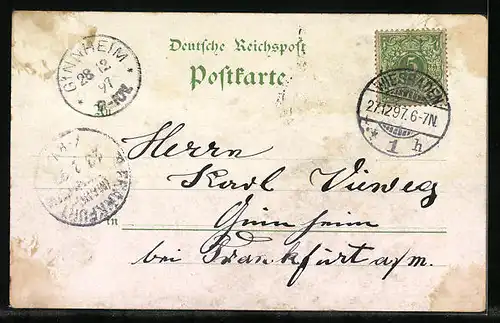 Deutsche Reichspost
Postkarte
GINNHEIM
28 12
97
5
WIESBADEN
27.12.97. 6-7N.
* 1 h
FRANKFURT
Herrn
Karl Vieweg
Ginnheim
in
bei Frankfurt a/m.